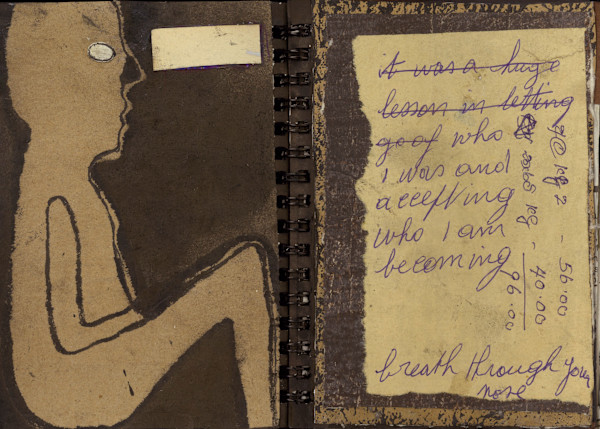 it was a huge
lesson in letting
go of who
I was and
accepting
who I am
becoming
kg 2 - 56.00
kg - 40.00
96.00
breath through your
nose